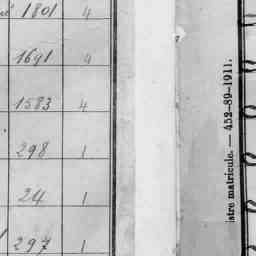 1801 4
1691 4
1583 4
298 1
24 1
297 1
istre matricule. — 452-89-1911.